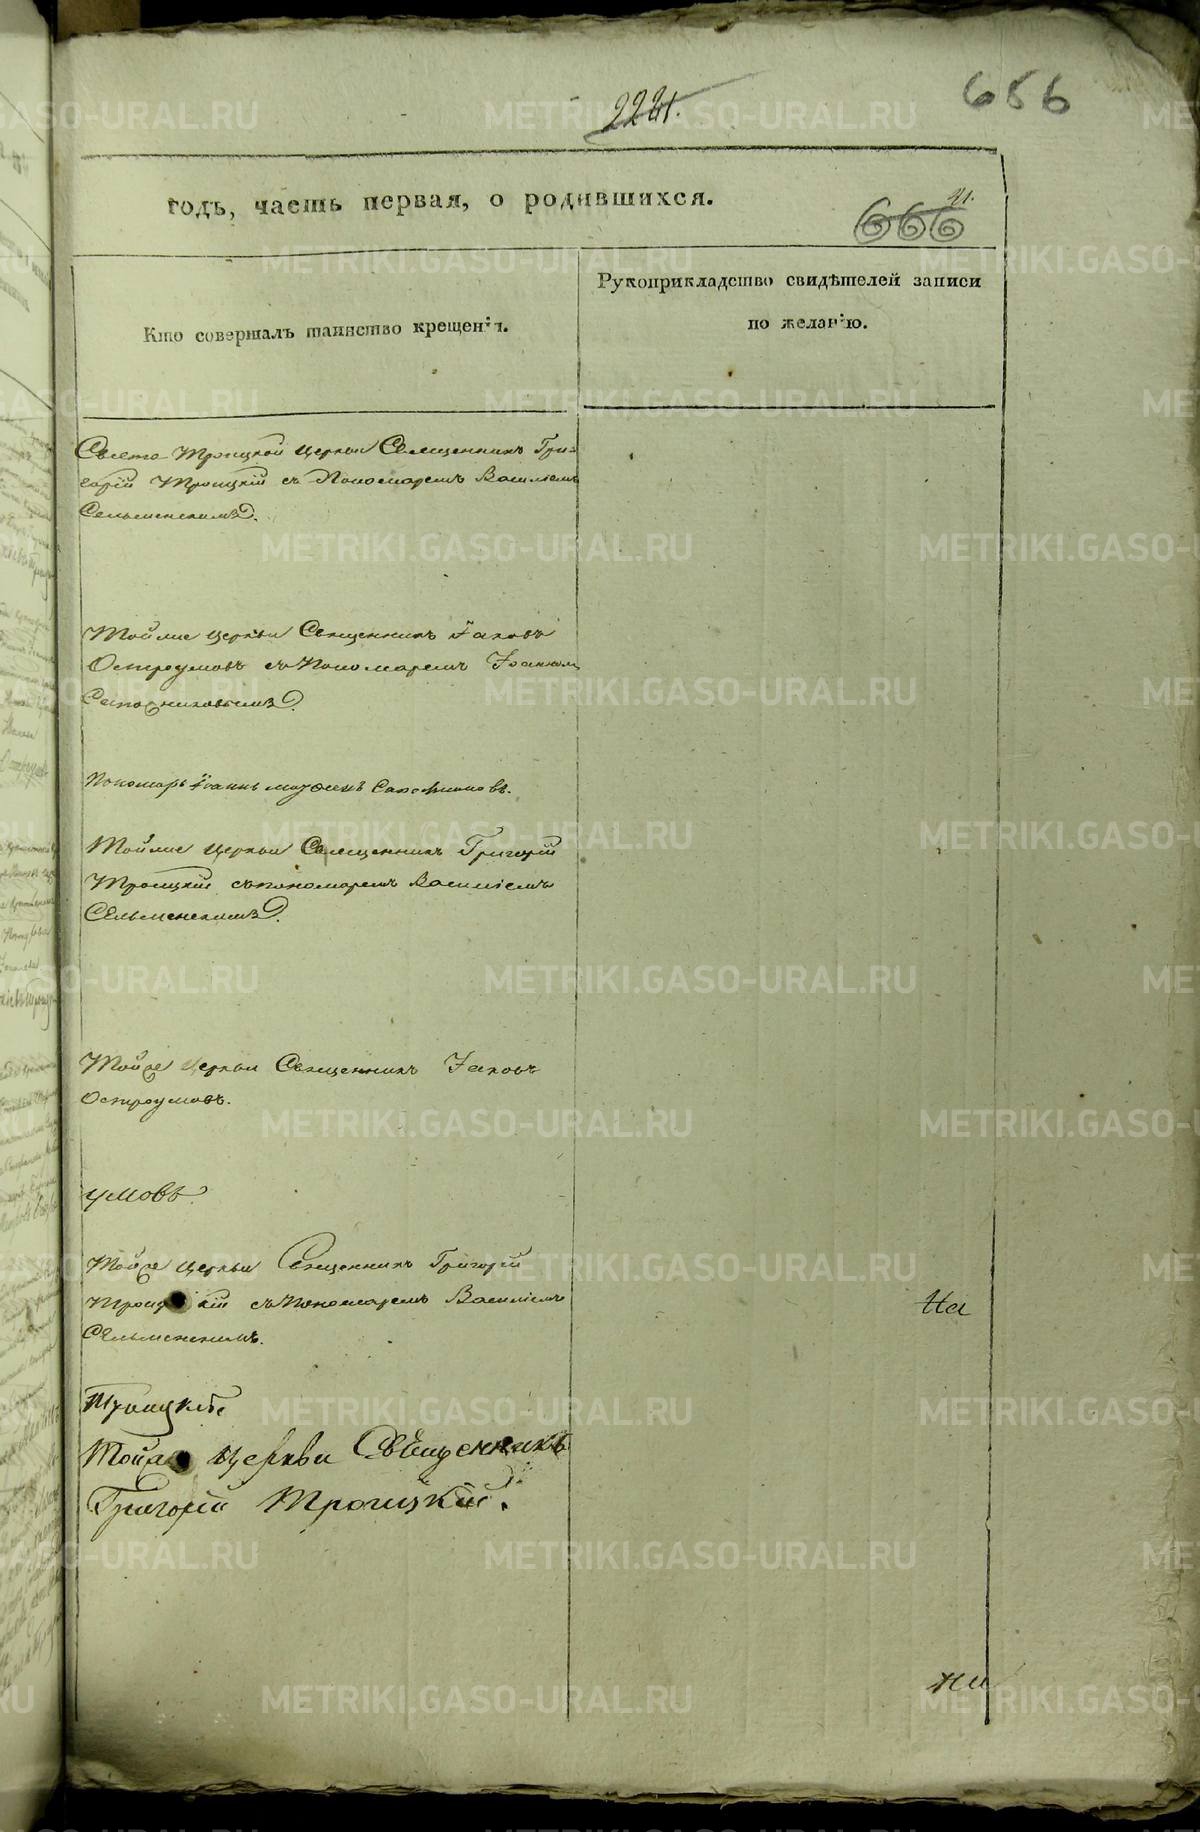 224.
656
годъ, часть первая, о родившихся.
41.
666
Кто совершалъ таинство крещенія.
Рукоприкладство свидѣтелей записи
по желанію.
Свято Троицкой церкви Священникъ Гри-
горій Троицкій съ Пономаремъ Василіемъ
Сельменскимъ.
Тойже церкви Священникъ Іаковъ
Остроумовъ съ Пономаремъ Іоанномъ
Сапожниковымъ.
Пономарь Іоаннъ
Тойже церкви Священникъ Григорій
Троицкій съ пономаремъ Василіемъ
Сельменскимъ.
Тойже церкви Священникъ Іаковъ
Остроумовъ.
умовъ.
Тойже церкви Священникъ Григорій
Троицкій съ Пономаремъ Василіемъ
Сельменскимъ.
На
Троицкій
Тойже церкви Священникъ
Григорій Троицкій.
ни
METRIKI.GASO-URAL.RU